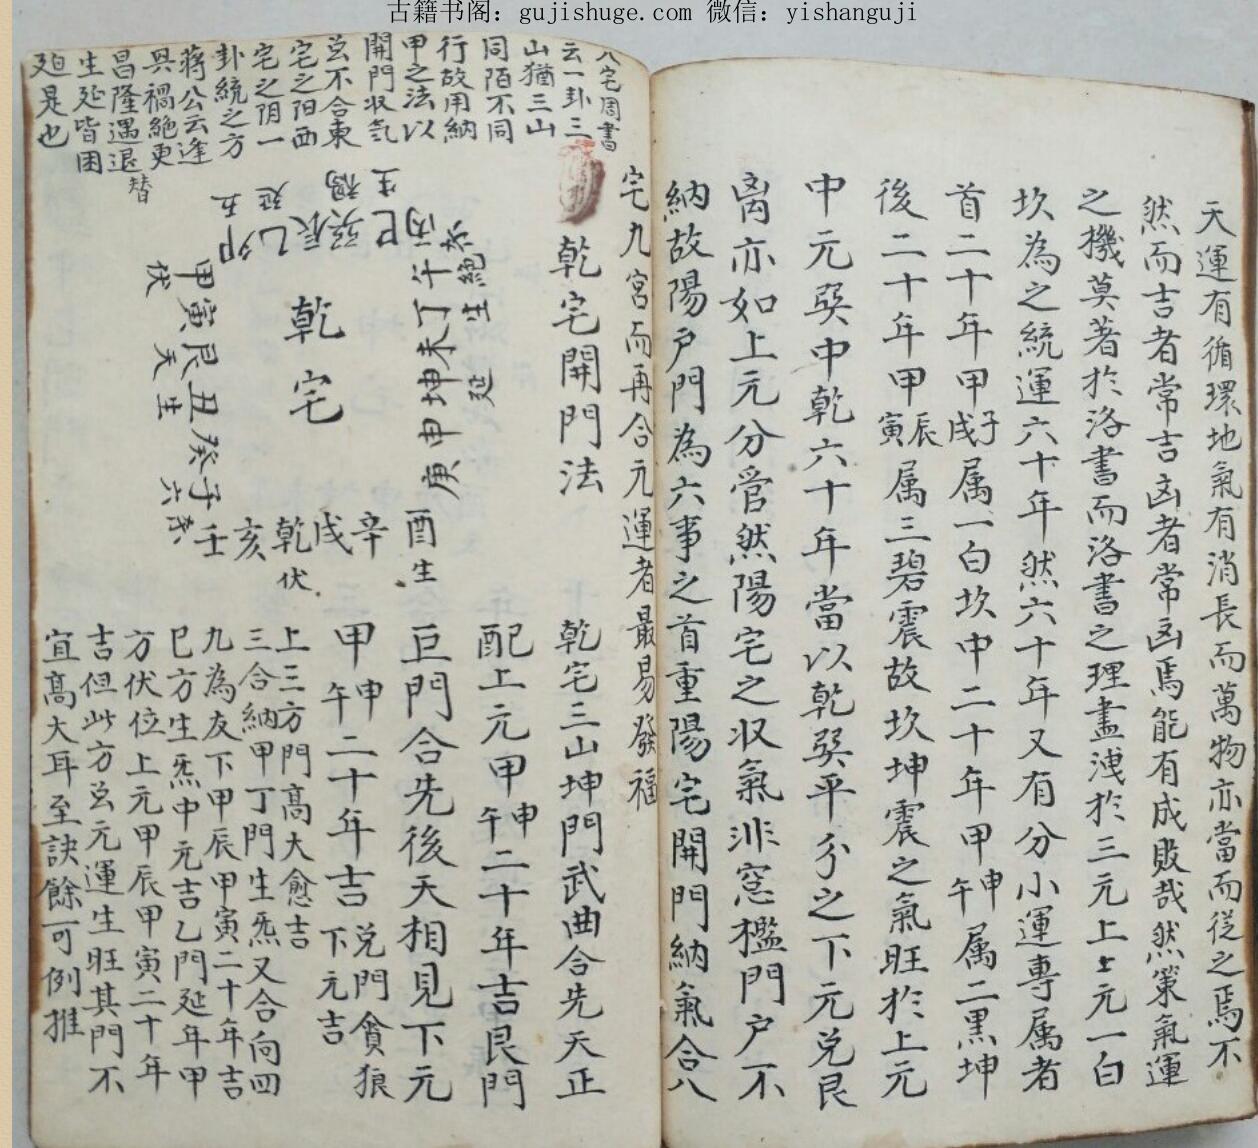 古籍书阁：gujishuge.com 微信：yishanguji
天運有循環地氣有消長而萬物亦當而從之焉不
然而吉者常吉凶者常凶焉能有成敗哉然策氣運
之機莫著於洛書而洛書之理盡洩於三元上上元一白
坎為之統運六十年然六十年又有分小運專属者
首二十年甲子戌属一白坎中二十年甲申午属二黑坤
後二十年甲辰寅属三碧震故坎坤震之氣旺於上元
中元巽中乾六十年當以乾巽平分之下元兌艮
离亦如上元分管然陽宅之収氣非窓檻門户不
納故陽户門為六事之首重陽宅開門納氣合八
宅九宮而再合元運者最易發福
八宅周書
云一卦三
山猶三山
同陌不同
行故用納
甲之法以
開門収氣
玄不合東
宅之阳西
宅之阴一
卦統之方
蔣公云逢
具禍絶更
昌隆遇退
生延皆困
廹是也
替
乾宅開門法
乾宅
巳丙
巽辰乙卯
生禍
延五
午丁未坤申庚
絶生延
甲寅艮丑癸子
伏天生六
酉辛戌乾亥壬
生伏
乾宅三山坤門武曲合先天正
配上元甲申午二十年吉艮門
巨門合先後天相見下元
甲申午二十年吉兑門貪狼下元吉
上三方門高大愈吉
三合納甲丁門生炁又合向四
九為友下甲辰甲寅二十年吉
巳方生炁中元吉乙門延年甲
方伏位上元甲辰甲寅二十年
吉但此方玄元運生旺其門不
宜高大耳至訣餘可例推